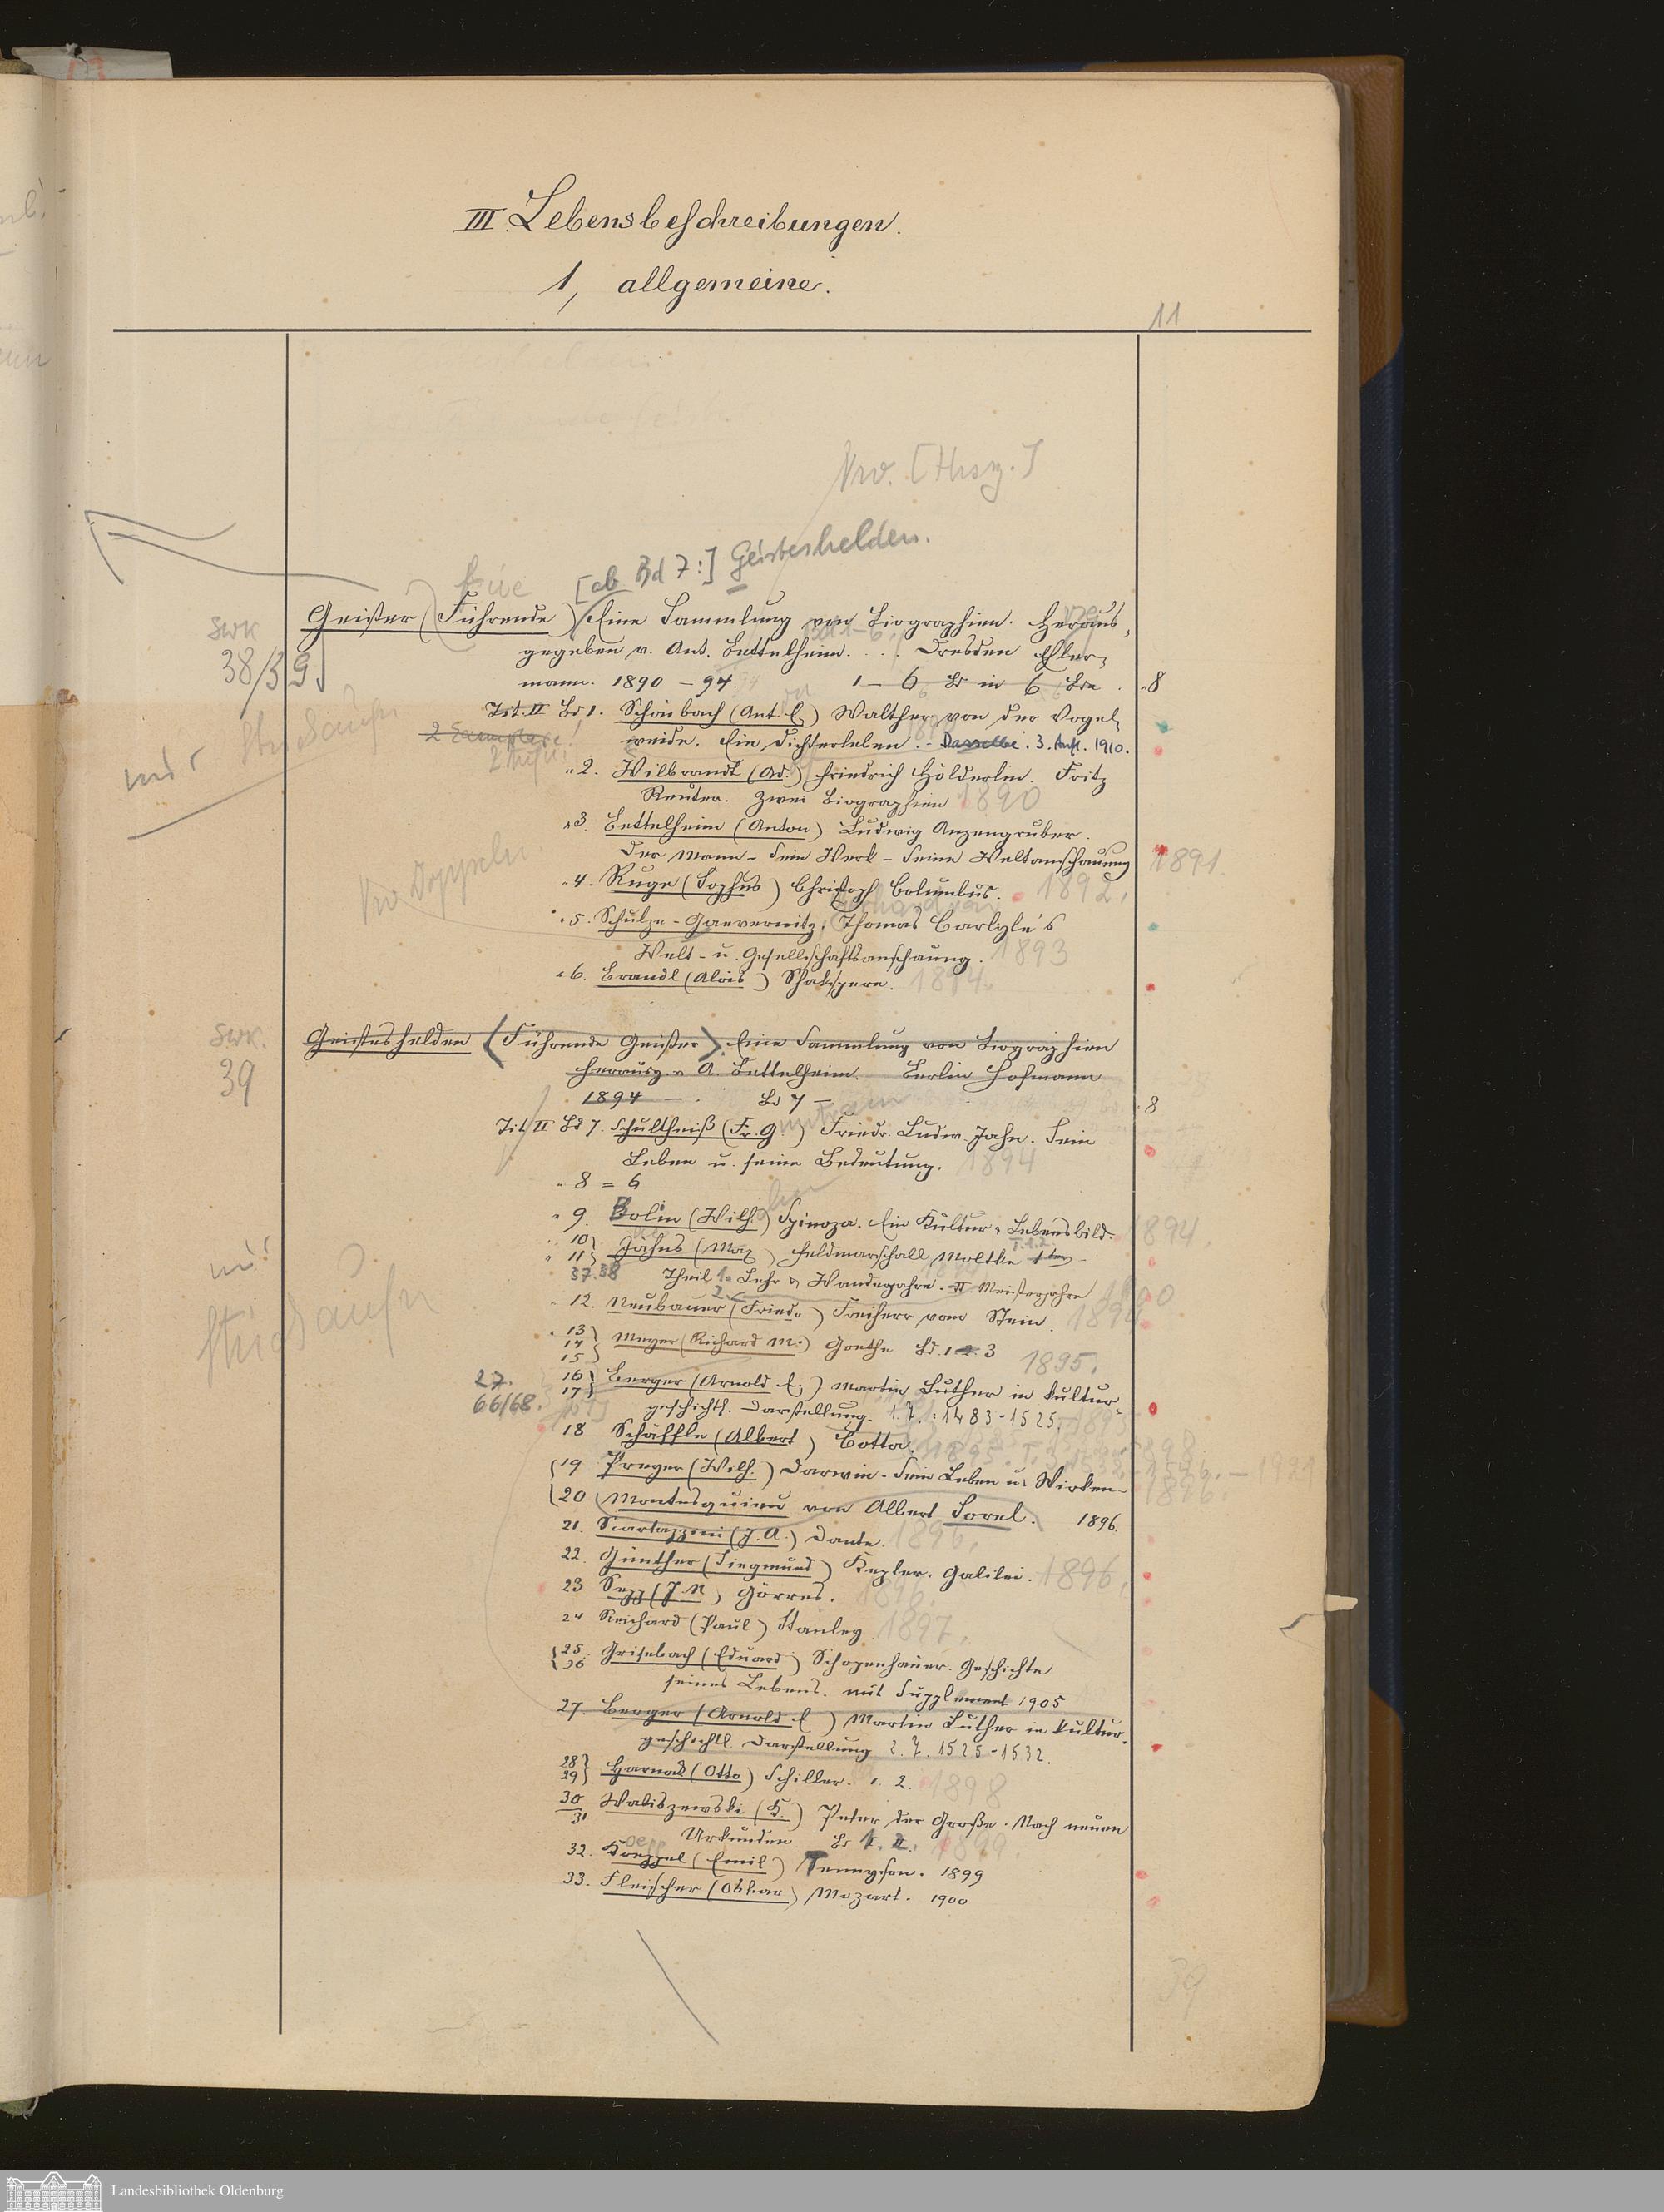 III. Lebensbeschreibungen.
1, allgemeine.
11
Vw. [Hrsg.]
[ab Bd 7:] Geisteshelden.
Geister (Führende) Eine Sammlung von Biographien. Heraus-
gegeben v. Ant. Bettelheim. . . . Dresden Ehler-
mann. 1890 - 94. 1 - 6 Bd in 6 Bde. 8
SWK
38/39
Tit. II Bd 1. Schönbach (Ant. E.) Walther von der Vogel-
2 Exemplare! weide. Ein Dichterleben. - Dasselbe. 3. Aufl. 1910.
" 2. Wilbrandt (Ad.) Friedrich Hölderlin. Fritz
Reuter. Zwei Biographien 1890
" 3. Bettelheim (Anton) Ludwig Anzengruber.
Der Mann - Sein Werk - Seine Weltanschauung 1891.
" 4. Ruge (Sophus) Christoph Columbus. 1892.
" 5. Schulze-Gaevernitz, Thomas Carlyle's
Welt- u. Gesellschaftsanschauung. 1893
" 6. Brandl (Alois) Shakspere. 1894.
SWK.
39
Geisteshelden (Führende Geister). Eine Sammlung von Biographien
herausg. v. A. Bettelheim. Berlin Hofmann
1894 - . Bd 7 - 8
Tit II Bd 7. Schultheiß (Fr. G) Friedr. Ludw. Jahn. Sein
Leben u. seine Bedeutung. 1894
" 8 = 6
" 9. Bolin (Wilh.) Spinoza. Ein Kultur- u. Lebensbild. 1894.
" 10 } Jähns (Max) Feldmarschall Moltke 1ter
" 11 }
37.38 Theil 1. Lehr u Wanderjahre. II. Meisterjahre 1900
" 12. Neubauer (Friedr) Freiherr vom Stein. 1894
" 13 } Meyer (Richard M.) Goethe Bd. 1 2. 3 1895.
14
15
27. 16 } Berger (Arnold E.) Martin Luther in kultur-
66/68. 17 } geschichtl. Darstellung. 1. T.: 1483-1525.
18 Schäffle (Albert) Cotta.
19 Preyer (Wilh.) Darwin. Sein Leben u. Wirken 1896.
20 Montesquieu von Albert Sorel. 1896.
21. Scartazzini (J. A.) Dante. 1896.
22. Günther (Siegmund) Kepler. Galilei. 1896.
23 Sepp (J. N) Görres. 1896.
24 Reichard (Paul) Stanley 1897.
25. Grisebach (Eduard) Schopenhauer. Geschichte
26 seines Lebens. mit Supplement 1905
27. Berger (Arnold E) Martin Luther in kultur-
geschichtl. Darstellung 2. T. 1525-1532.
28 } Harnack (Otto) Schiller. 1. 2. 1898
29 }
30 Waliszewski (K.) Peter der Große. Nach neuen
31 Urkunden Bd I. II. 1899.
32. Koeppel (Emil) Tennyson. 1899
33. Fleischer (Oskar) Mozart. 1900
39
Landesbibliothek Oldenburg